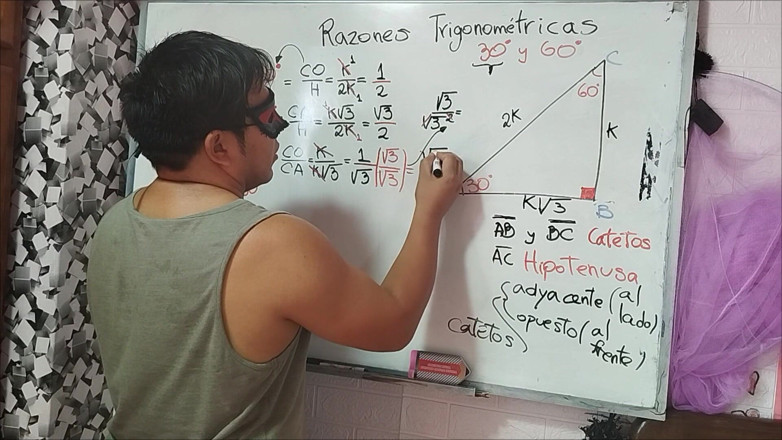 Razones Trigonométricas
30° y 60°
= CO/H = k/2k = 1/2
CA/H = k√3/2k = √3/2
CO/CA = k/k√3 = 1/√3 (√3/√3) =
√3/√3² =
C
60°
2k
k
30°
k√3
B
AB y BC Catetos
AC Hipotenusa
catetos
adyacente (al lado)
opuesto (al frente)